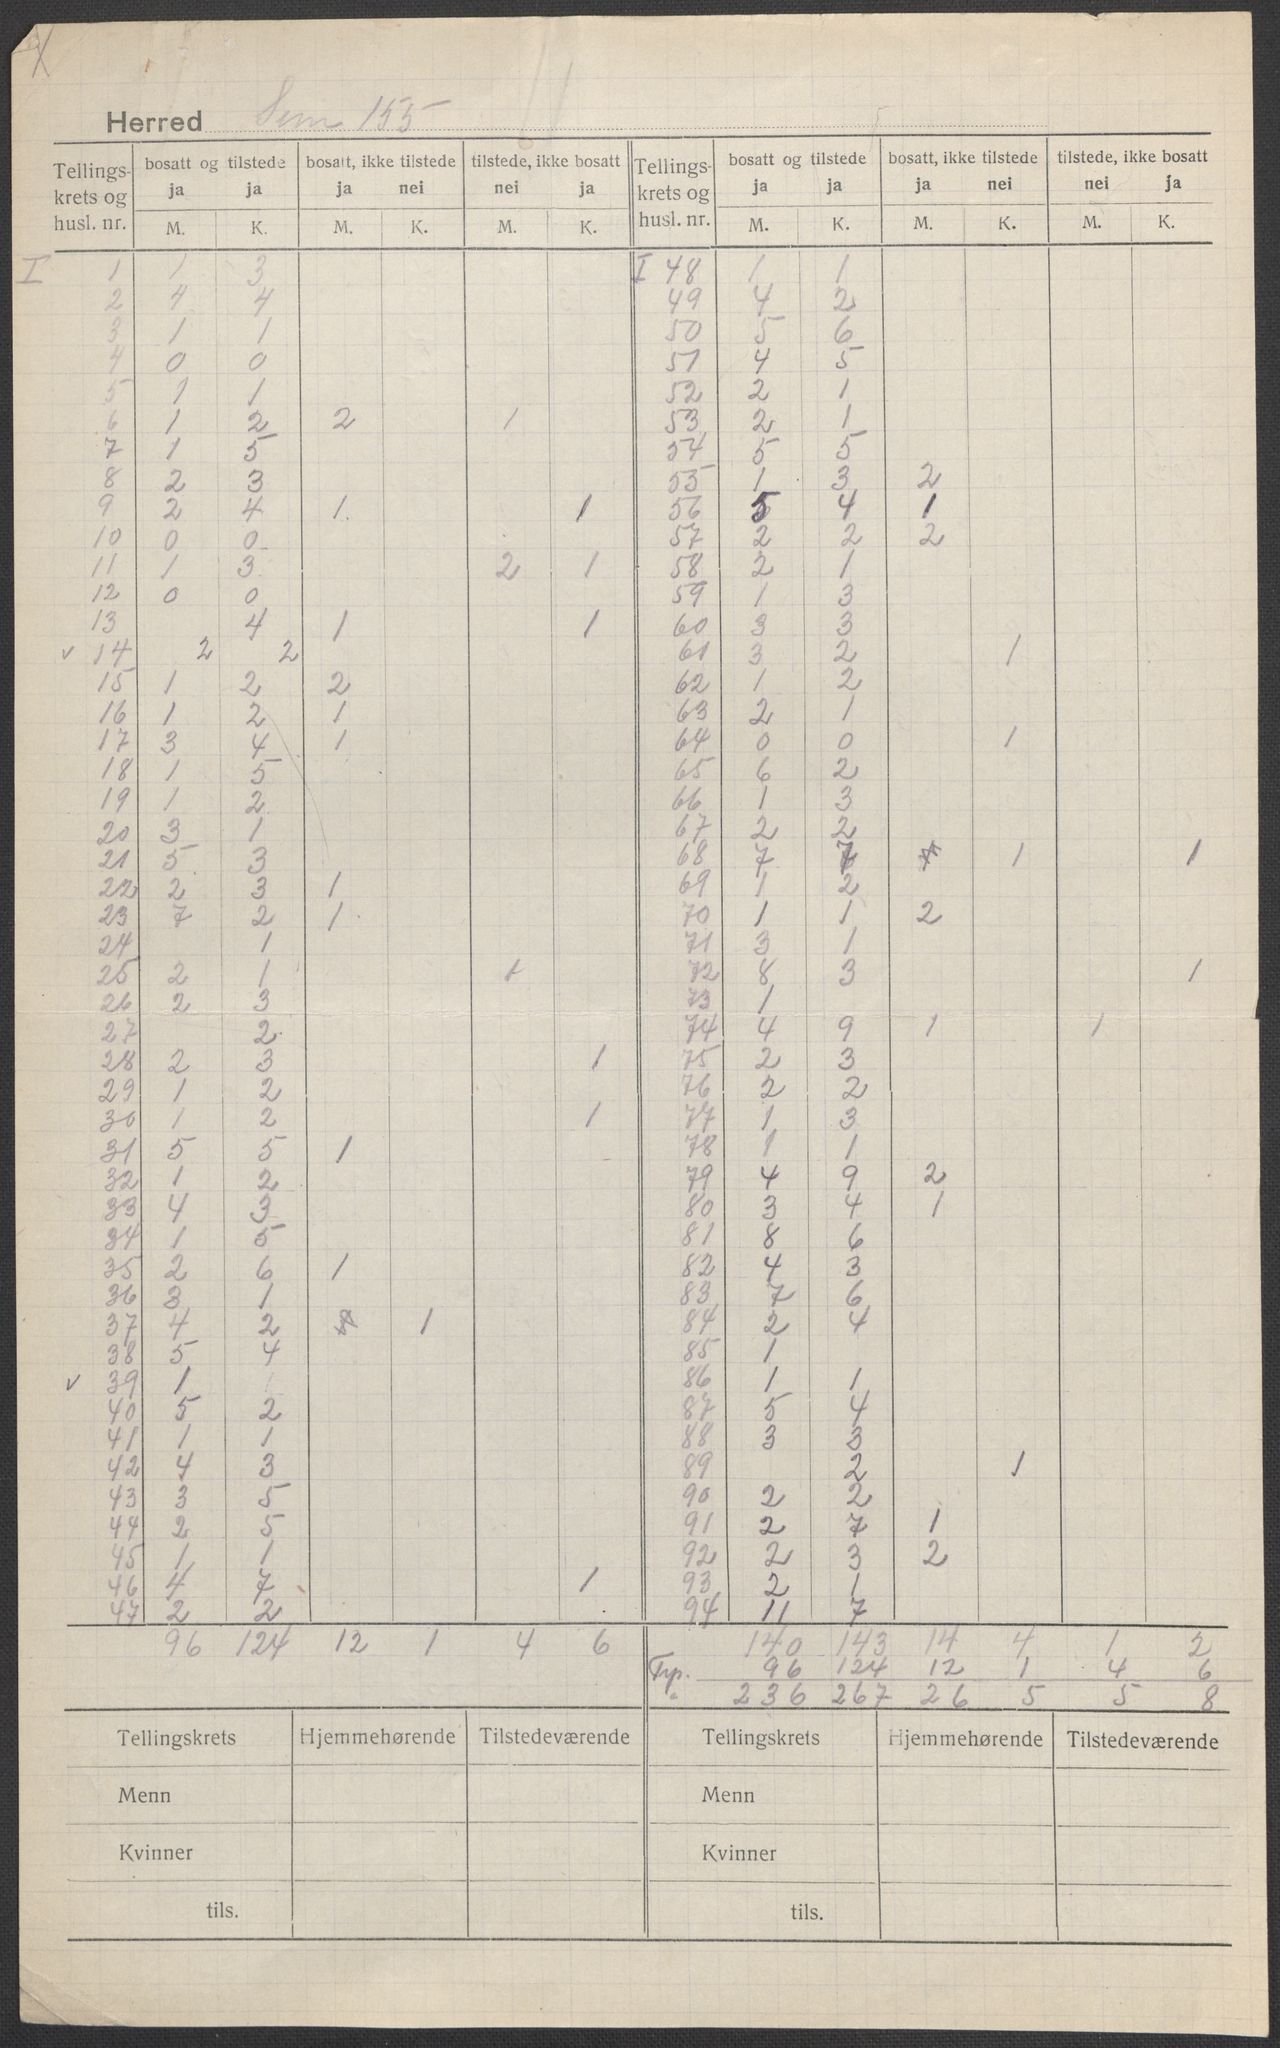 X
Herred Sem 155
Tellings- bosatt og tilstede bosatt, ikke tilstede tilstede, ikke bosatt Tellings- bosatt og tilstede bosatt, ikke tilstede tilstede, ikke bosatt
krets og ja ja ja nei nei ja krets og ja ja ja nei nei ja
husl. nr. M. K. M. K. M. K. husl. nr. M. K. M. K. M. K.
I 1 1 3 I 48 1 1
2 4 4 49 4 2
3 1 1 50 5 6
4 0 0 51 4 5
5 1 1 52 2 1
6 1 2 2 1 53 2 1
7 1 5 54 5 5
8 2 3 55 1 3 2
9 2 4 1 1 56 5 4 1
10 0 0 57 2 2 2
11 1 3 2 1 58 2 1
12 0 0 59 1 3
13 4 1 1 60 3 3
v 14 2 2 61 3 2 1
15 1 2 2 62 1 2
16 1 2 1 63 2 1
17 3 4 1 64 0 0 1
18 1 5 65 6 2
19 1 2 66 1 3
20 3 1 67 2 2
21 5 3 68 7 7 1 1
22 2 3 1 69 1 2
23 7 2 1 70 1 1 2
24 1 71 3 1
25 2 1 1 72 8 3 1
26 2 3 73 1
27 2 74 4 9 1 1
28 2 3 1 75 2 3
29 1 2 76 2 2
30 1 2 1 77 1 3
31 5 5 1 78 1 1
32 1 2 79 4 9 2
33 4 3 80 3 4 1
34 1 5 81 8 6
35 2 6 1 82 4 3
36 3 1 83 7 6
37 4 2 1 84 2 4
38 5 4 85 1
v 39 1 86 1 1
40 5 2 87 5 4
41 1 1 88 3 3
42 4 3 89 2 1
43 3 5 90 2 2
44 2 5 91 2 7 1
45 1 1 92 2 3 2
46 4 7 1 93 2 1
47 2 2 94 11 7
96 124 12 1 4 6 140 143 14 4 1 2
96 124 12 1 4 6
236 267 26 5 5 8
Tellingskrets Hjemmehørende Tilstedeværende Tellingskrets Hjemmehørende Tilstedeværende
Menn Menn
Kvinner Kvinner
tils. tils.